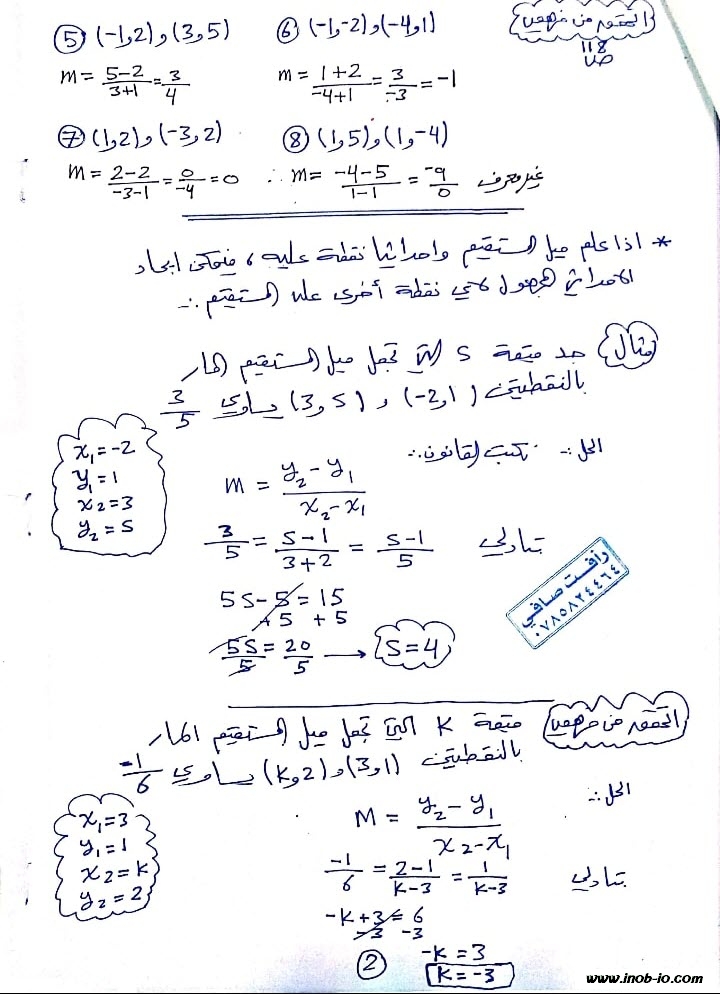 التحقق من فهمي
ص 118
⑤ (-1,2) و (3,5)
m = 5-2/3+1 = 3/4
⑥ (-1,-2) و (-4,1)
m = 1+2/-4+1 = 3/-3 = -1
⑦ (1,2) و (-3,2)
m = 2-2/-3-1 = 0/-4 = 0
⑧ (1,5) و (1,-4)
∴ m = -4-5/1-1 = -9/0 غير معرف
* اذا علم ميل المستقيم واحداثيا نقطة عليه، فيمكن ايجاد
الاحداثي المجهول لأي نقطة أخرى على المستقيم :-
مثال جد قيمة S التي تجعل ميل المستقيم المار
بالنقطتين (-2,1) و (3,S) يساوي 3/5
الحل :- نكتب القانون :-
x₁ = -2
y₁ = 1
x₂ = 3
y₂ = S
m = y₂ - y₁/x₂ - x₁
3/5 = S-1/3+2 = S-1/5 تبادلي
5S - 5 = 15
+5 +5
5S/5 = 20/5 → S=4
رأفت صافي
٠٧٨٥٨٢٤٤٦٤
التحقق من فهمي قيمة K التي تجعل ميل المستقيم المار
بالنقطتين (3,1) و (K,2) يساوي -1/6
الحل :-
x₁ = 3
y₁ = 1
x₂ = K
y₂ = 2
M = y₂ - y₁/x₂ - x₁
-1/6 = 2-1/K-3 = 1/K-3 تبادلي
-K + 3 = 6
-3 -3
-K = 3
K = -3
②
www.inob-jo.com